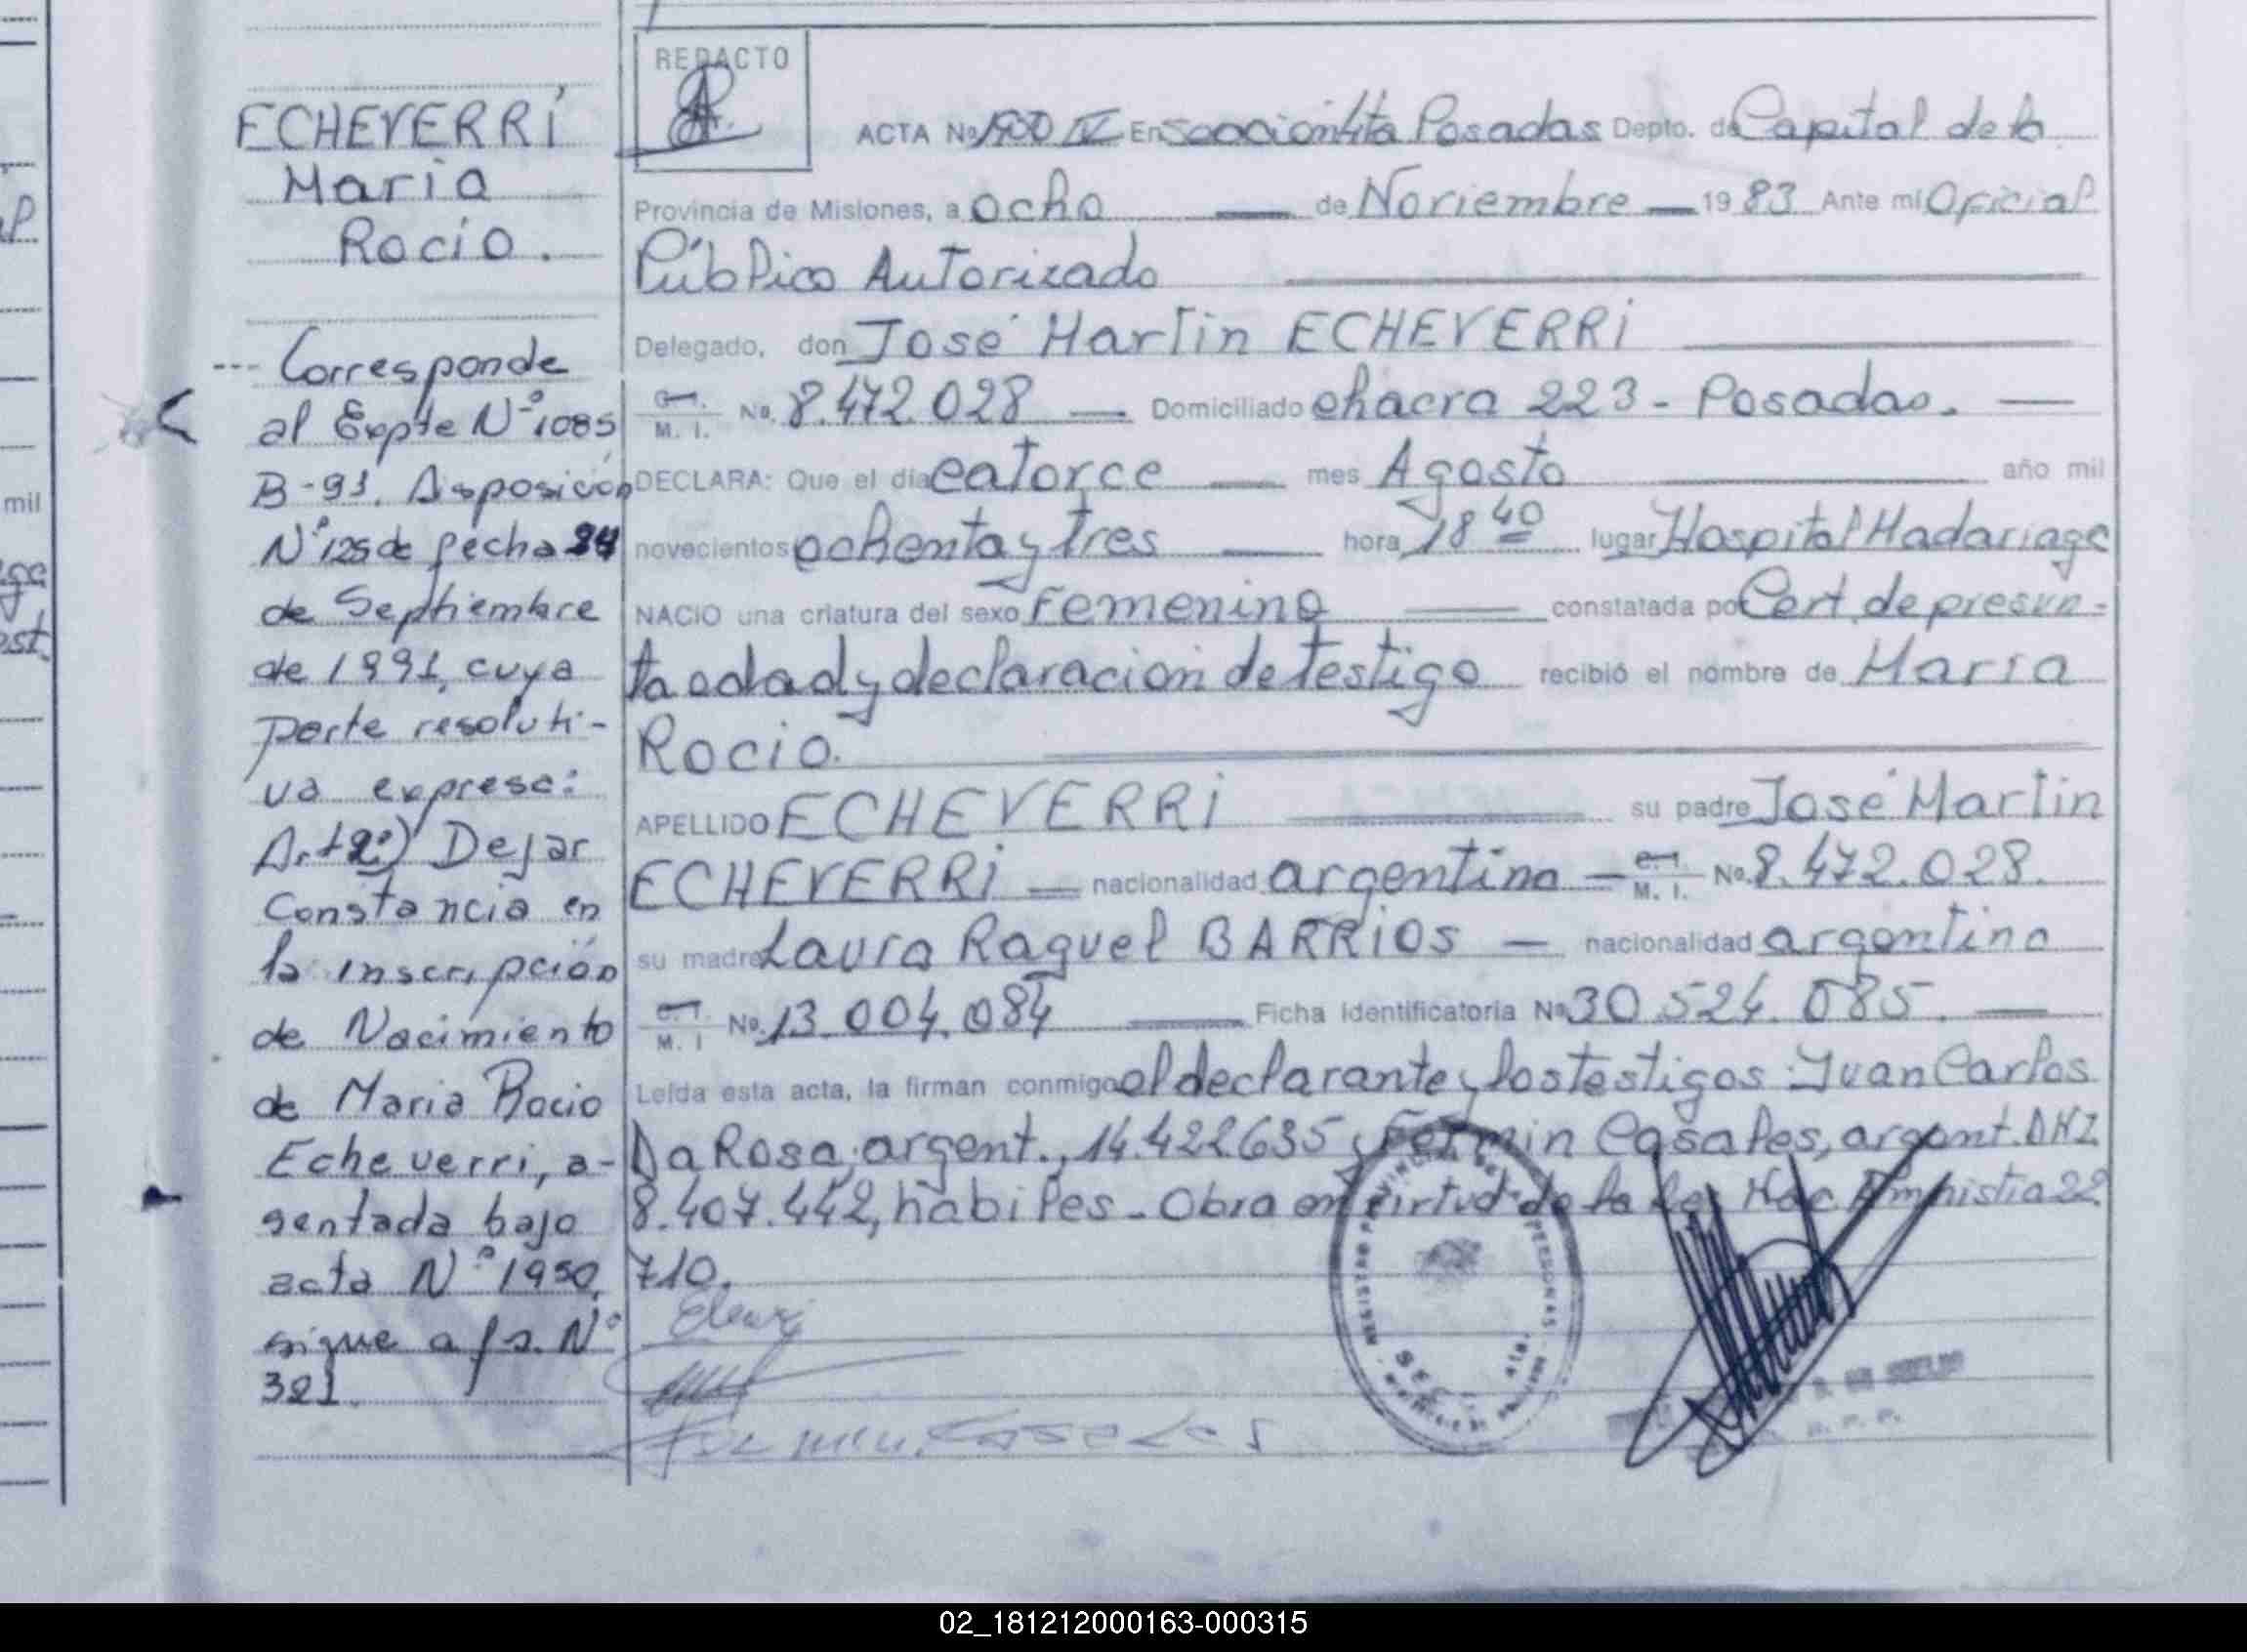 ECHEVERRI
Maria
Rocio.
--- Corresponde
al Expte Nº 1085
B-91. Disposición
Nº 125 de fecha 24
de Septiembre
de 1991, cuya
parte resoluti-
va expresa:
Art 2º) Dejar
Constancia en
la inscripción
de Nacimiento
de Maria Rocio
Echeverri, a-
sentada bajo
acta Nº 1950,
sigue a fs. Nº
321.
REDACTO
ACTA No 1950 IV En sección 4ta Posadas Depto. de Capital de la
Provincia de Misiones, a ocho — de Noviembre — 19 83 Ante mí Oficial
Público Autorizado
Delegado, don José Martin ECHEVERRI
M. I. No. 8.472.028 — Domiciliado chacra 223 - Posadas. —
DECLARA: Que el día catorce — mes Agosto año mil
novecientos ochenta y tres — hora 18 40 lugar Hospital Madariaga
NACIO una criatura del sexo Femenino — constatada por Cert. de presun-
ta edad y declaración de testigo recibió el nombre de Maria
Rocio.
APELLIDO ECHEVERRI su padre José Martin
ECHEVERRI — nacionalidad argentina — M. I. No. 8.472.028.
su madre Laura Raquel BARRIOS — nacionalidad argentina
M. I No. 13.004.084 — Ficha Identificatoria No 30.524.085. —
Leída esta acta, la firman conmigo el declarante y los testigos: Juan Carlos
Da Rosa, argent., 14.422.635 y Fermin Casales, argent. DNI
8.407.442, hábiles - Obra en virtud de la Ley Nac. Amnistia 22.
710.
Fermin Casales
REGISTRO PROVINCIAL DE LAS PERSONAS
SEC. 4ta.
02_181212000163-000315